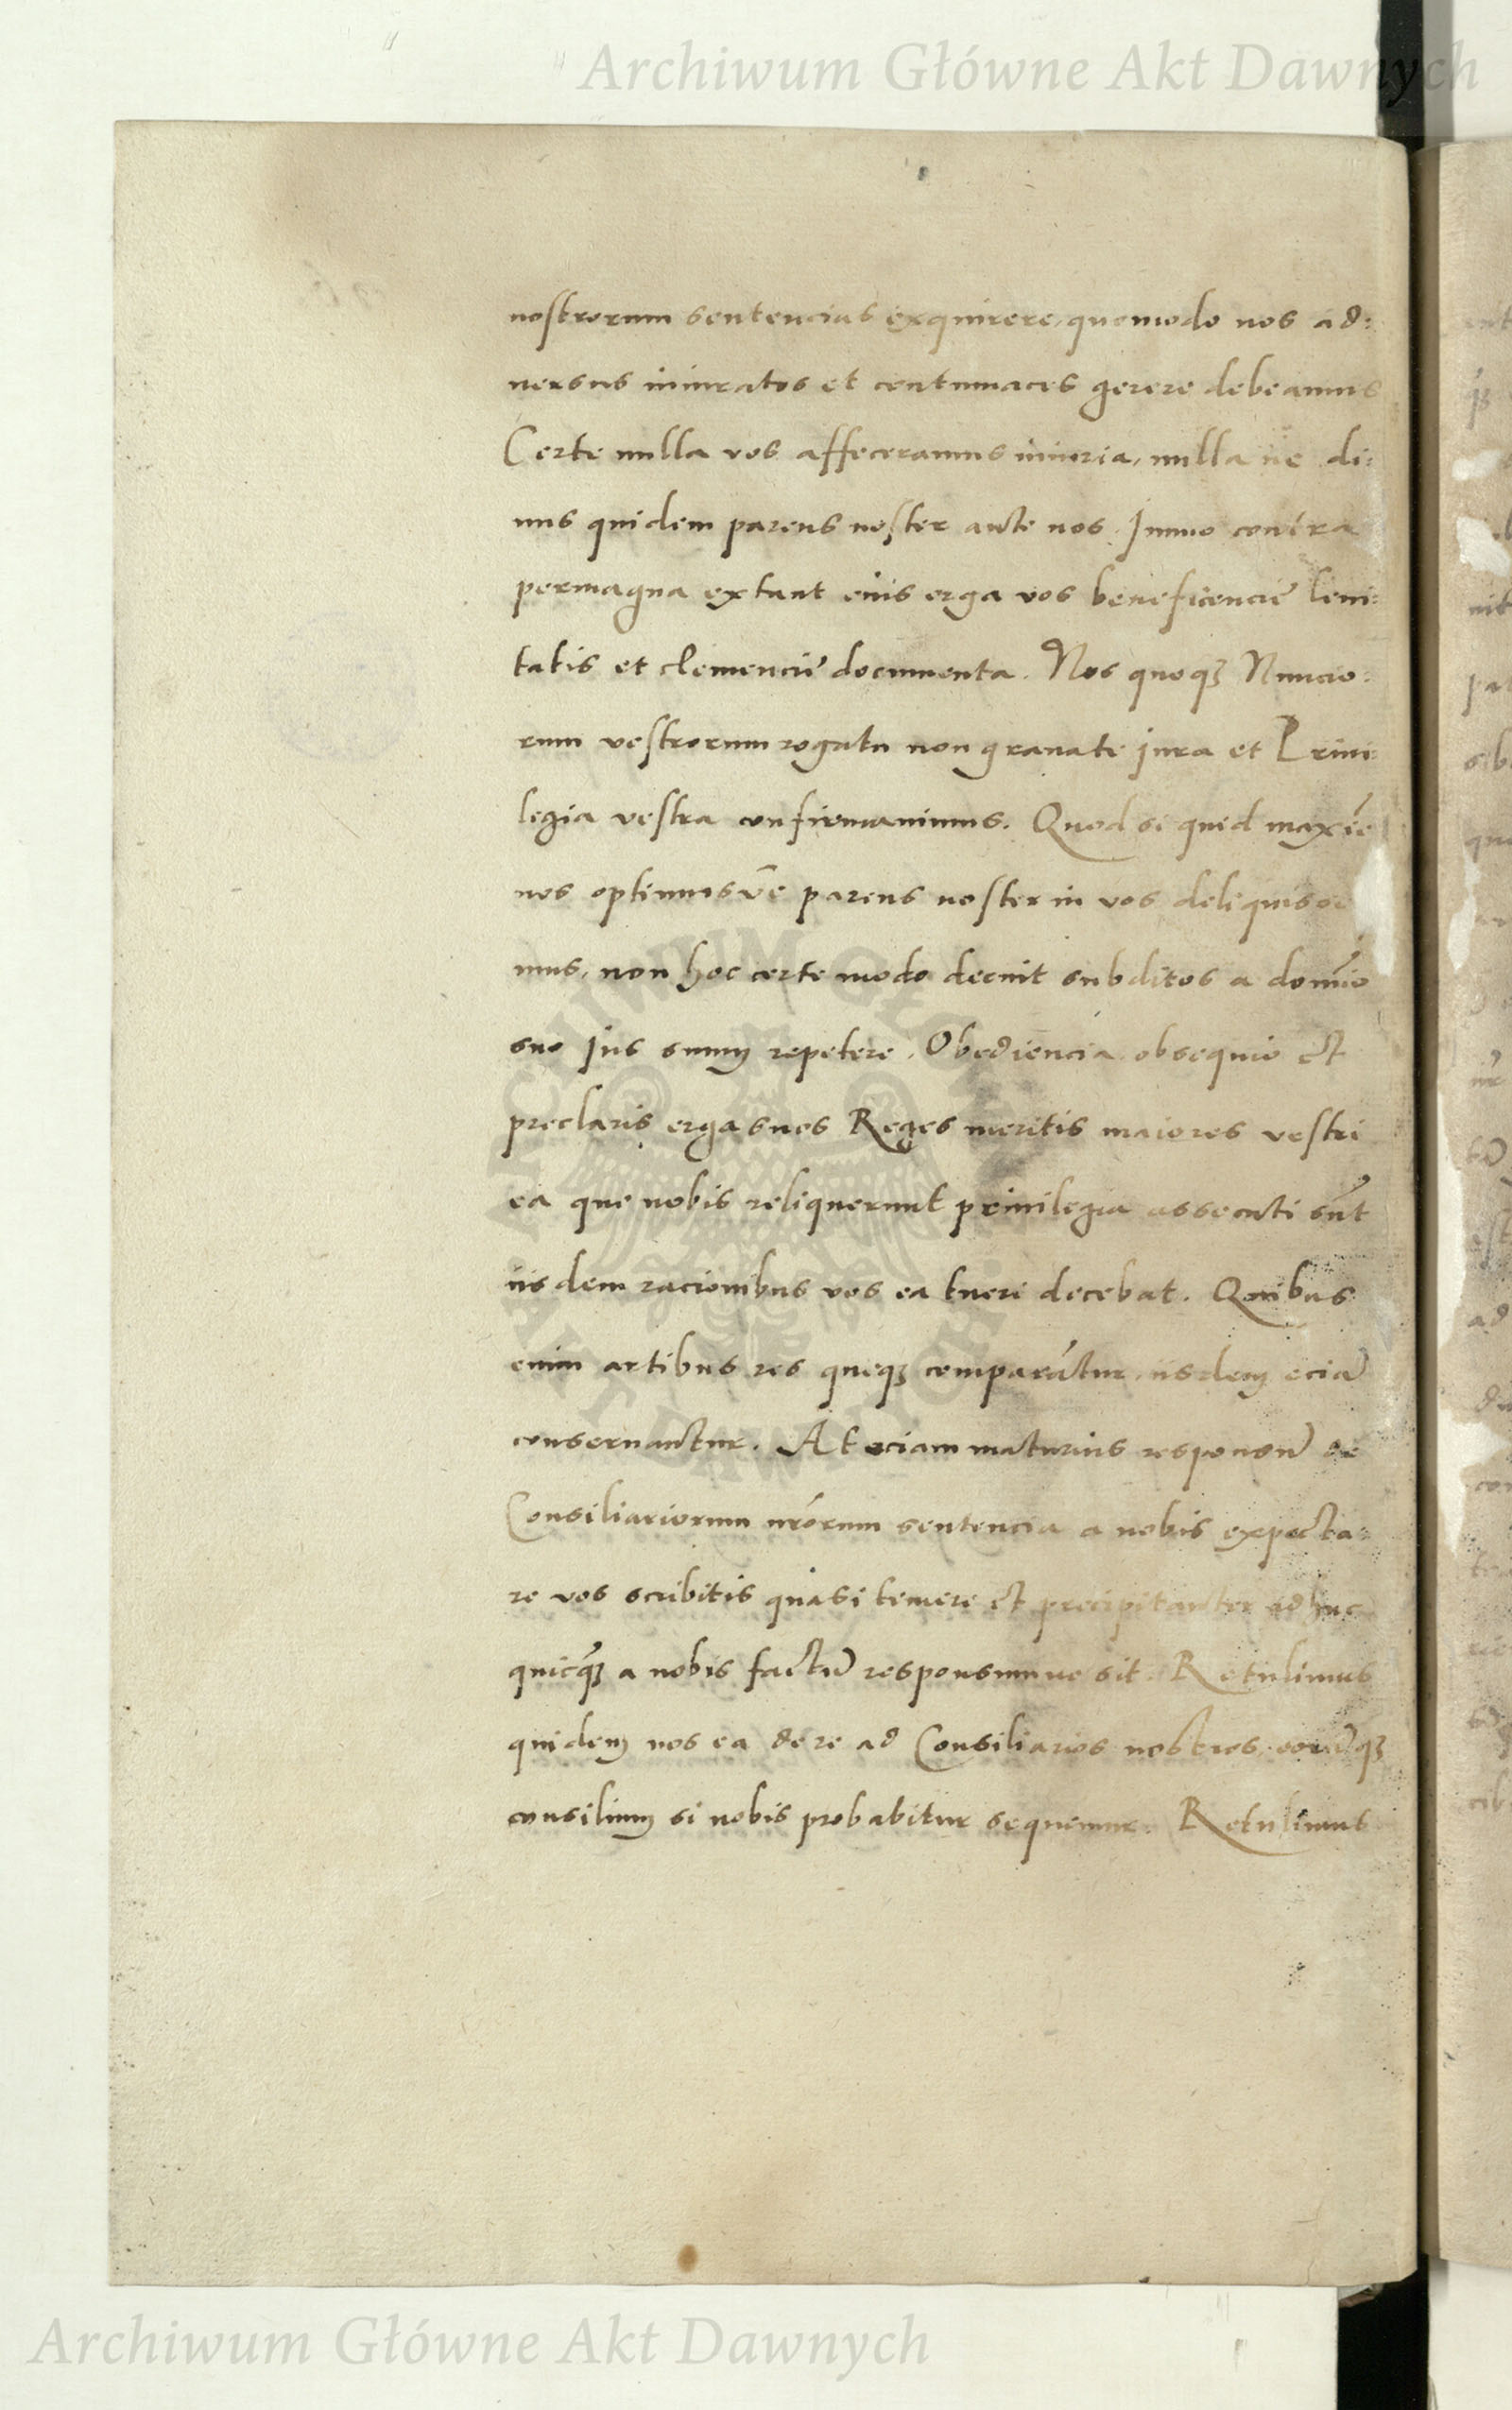 Archiwum Główne Akt Dawnych
nostrorum sentencias exquirere, quomodo nos ad:
uersus iniuratos et contumaces gerere debeamus
Certe nulla vos affeceramus iniuria, nulla ne di:
uus quidem parens noster ante nos. Immo contra
permagna extant eius erga vos beneficencie leni:
tatis et clemencie documenta. Nos quoqꝫ Nuncio:
rum vestrorum rogatu non grauate jura et Priui:
legia vestra confirmauimus. Quod si quid maxie
nos optimusve parens noster in vos deliquisse
mus, non hoc certe modo decuit subditos a domio
suo jus suum repetere. Obediencia obsequio et
preclaris erga suos Reges meritis maiores vestri
ea que vobis reliquerunt priuilegia assecuti sunt
iisdem racionibus vos ea tueri decebat. Quibus
enim artibus res queqꝫ comparãtur, iisdem eciã
conseruantur. At eciam maturius responsũ de
Consiliariorum nr̃orum sentencia a nobis expecta:
re vos scribitis quasi temere et precipitanter adhuc
quicqꝫ a nobis factũ responsumue sit. Retulimus
quidem nos ea de re ad Consiliarios nostros, eorũqꝫ
consilium si nobis probabitur sequemur. Retulimus
Archiwum Główne Akt Dawnych